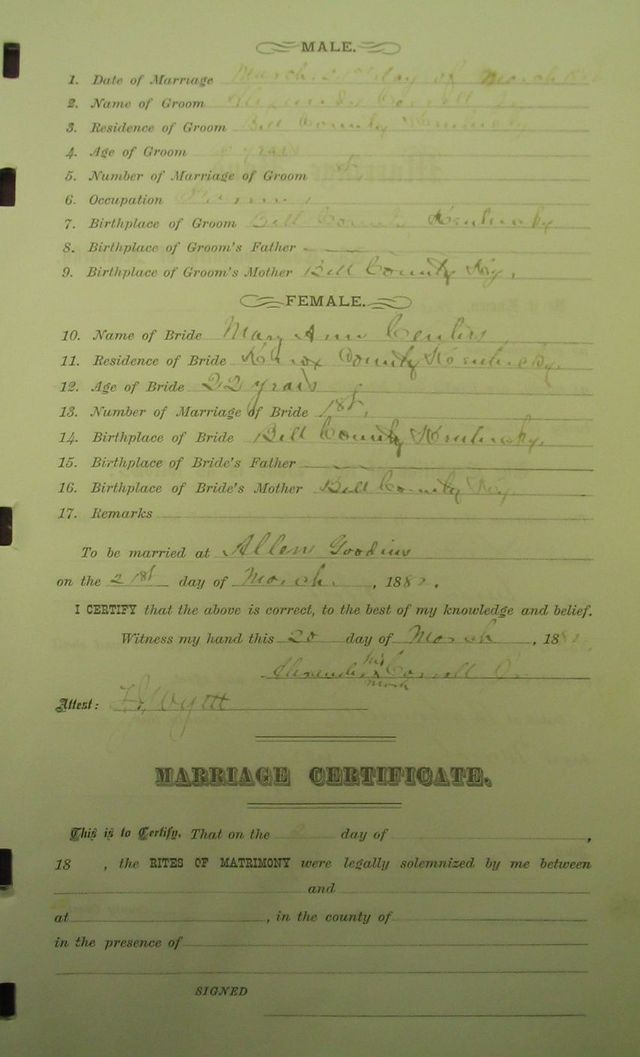 MALE.
1. Date of Marriage March 21st day of March
2. Name of Groom
3. Residence of Groom Bell County Kentucky
4. Age of Groom years
5. Number of Marriage of Groom
6. Occupation
7. Birthplace of Groom Bell County Kentucky
8. Birthplace of Groom's Father
9. Birthplace of Groom's Mother Bell County Ky.
FEMALE.
10. Name of Bride Mary Ann
11. Residence of Bride Knox County Kentucky.
12. Age of Bride 22 years
13. Number of Marriage of Bride 1st.
14. Birthplace of Bride Bell County Kentucky.
15. Birthplace of Bride's Father
16. Birthplace of Bride's Mother Bell County Ky
17. Remarks
To be married at Allen Goodins
on the 21st day of March , 188
I CERTIFY that the above is correct, to the best of my knowledge and belief.
Witness my hand this 20 day of March , 188
his
mark
Attest:
MARRIAGE CERTIFICATE.
This is to Certify, That on the day of ,
18 , the RITES OF MATRIMONY were legally solemnized by me between
and
at , in the county of
in the presence of
SIGNED